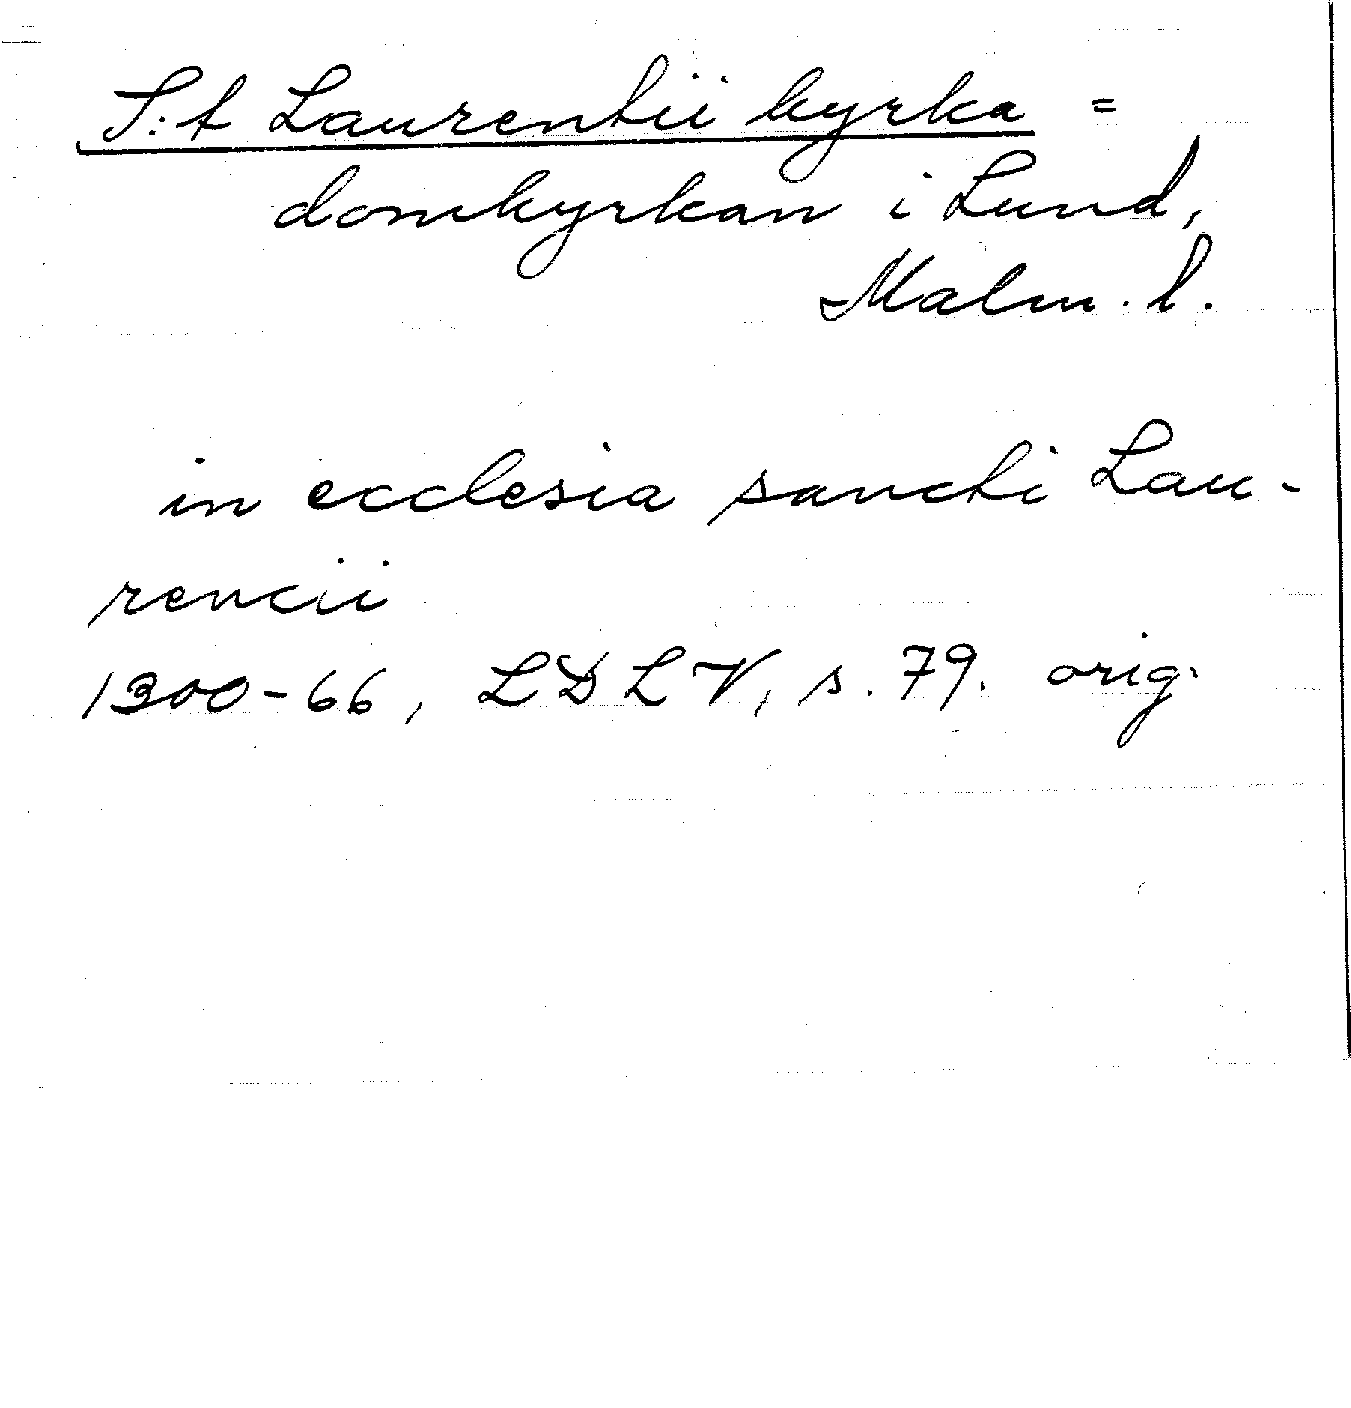 S:t Laurentii kyrka =
domkyrkan i Lund,
Malm. l.
in ecclesia sancti Lau-
rencii
1300-66, LDLV, s. 79. orig.